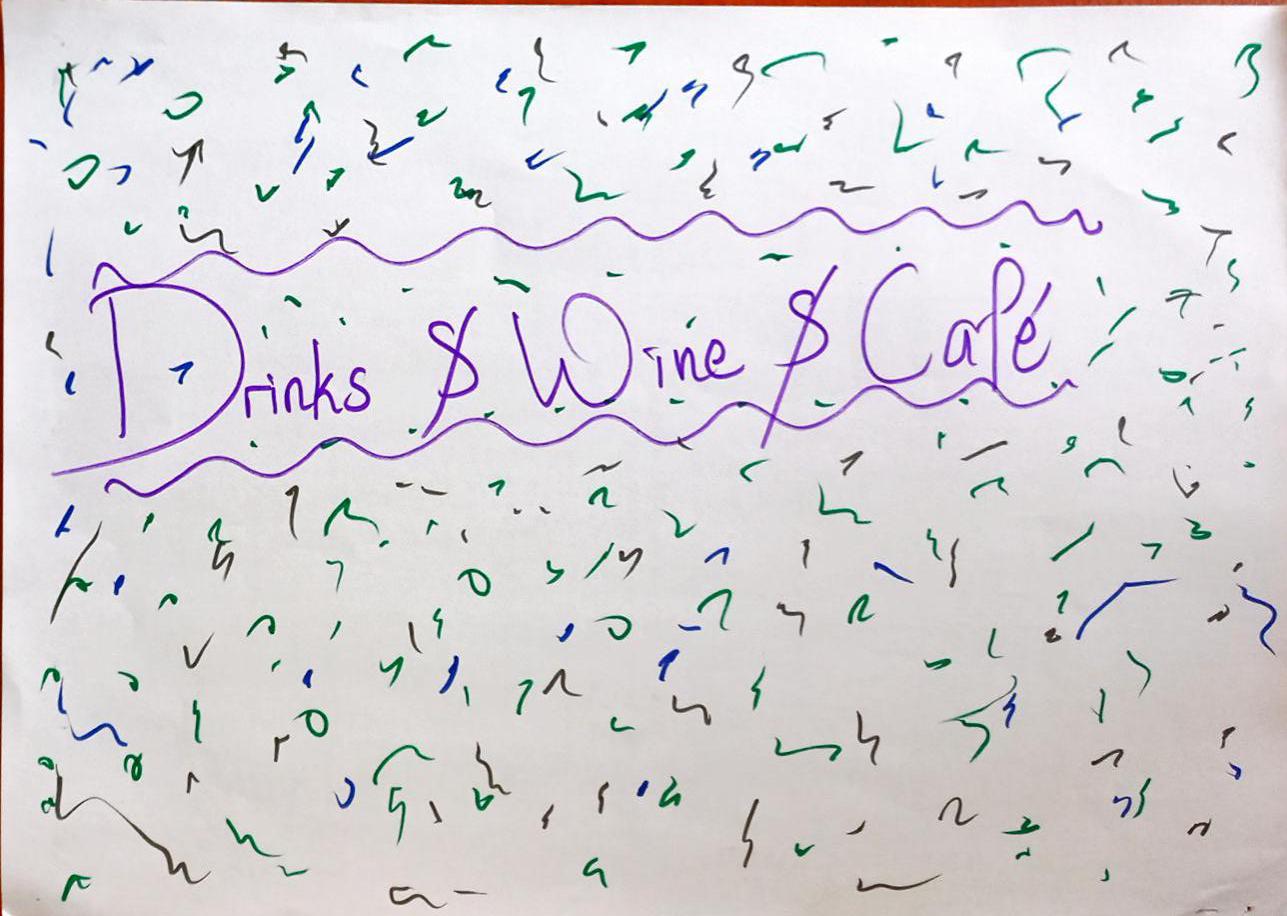 Drinks $ Wine $ Café